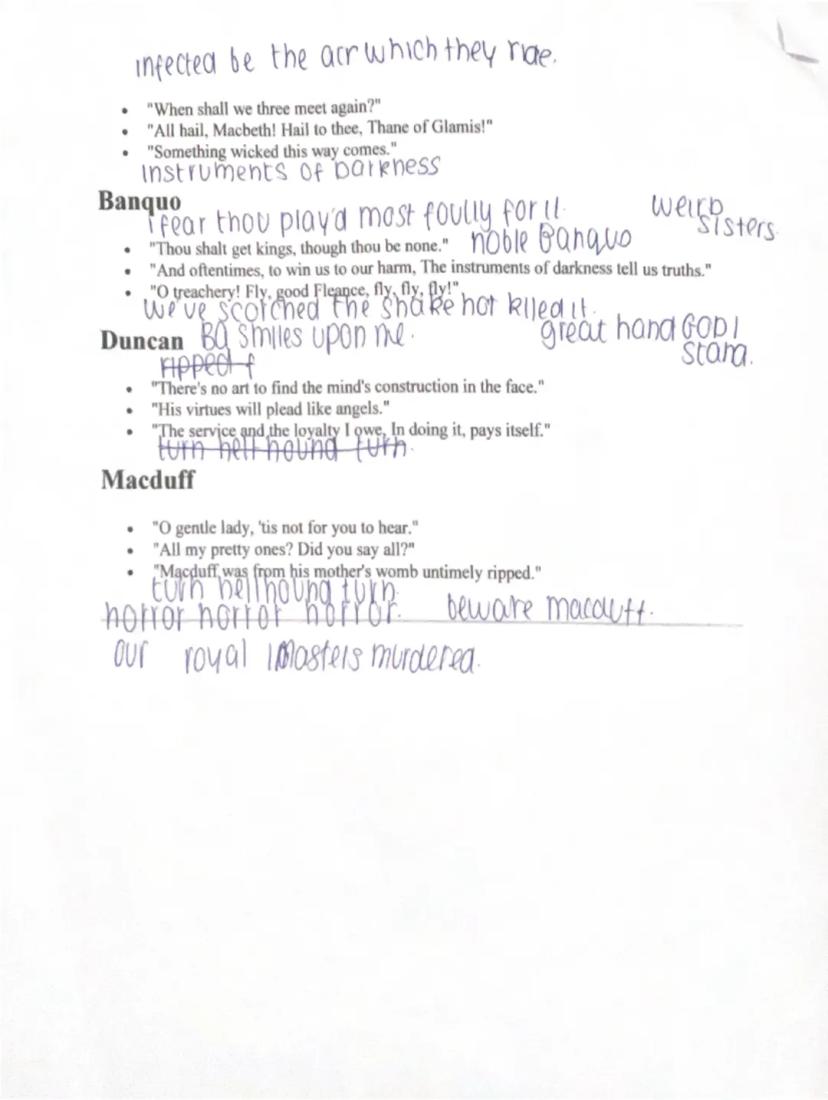 infected be the air which they ride.
• "When shall we three meet again?"
• "All hail, Macbeth! Hail to thee, Thane of Glamis!"
• "Something wicked this way comes."
instruments of Darkness
Banquo
i fear thou play'd most foully for it. weird sisters
• "Thou shalt get kings, though thou be none." noble Banquo
• "And oftentimes, to win us to our harm, The instruments of darkness tell us truths."
• "O treachery! Fly, good Fleance, fly, fly, fly!"
we've scotched the snake not killed it.
Duncan smiles upon me. great hand GOD I stand.
ripped f
• "There's no art to find the mind's construction in the face."
• "His virtues will plead like angels."
• "The service and the loyalty I owe, In doing it, pays itself."
turn hell hound turn.
Macduff
• "O gentle lady, 'tis not for you to hear."
• "All my pretty ones? Did you say all?"
• "Macduff was from his mother's womb untimely ripped."
turn hellhound turn
horror horror horror. beware macduff.
our royal Masters murdered.